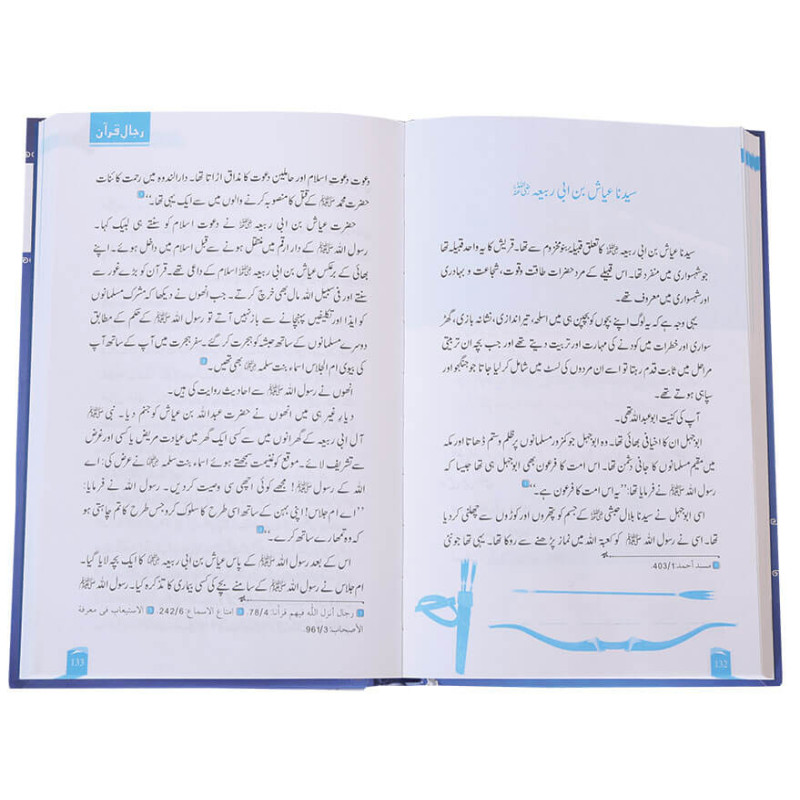 سیدنا عیاش بن ابی ربیعہ رضی اللہ عنہ
سیدنا عیاش بن ابی ربیعہ رضی اللہ عنہ کا تعلق قبیلہ بنو مخزوم سے تھا۔ قریش کا یہ واحد قبیلہ تھا
جو شہسواری میں منفرد تھا۔ اس قبیلے کے مرد حضرات طاقت وقوت، شجاعت و بہادری
اور شہسواری میں معروف تھے۔
یہی وجہ ہے کہ یہ لوگ اپنے بچوں کو بچپن ہی میں اسلحہ، تیر اندازی، نشانہ بازی، گھڑ
سواری اور خطرات میں کودنے کی مہارت اور تربیت دیتے تھے اور جب بچہ ان تربیتی
مراحل میں ثابت قدم رہتا تو اسے ان مردوں کی لسٹ میں شامل کر لیا جاتا جو جنگجو اور
سپاہی ہوتے تھے۔
آپ کی کنیت ابو عبداللہ تھی۔
ابو جہل ان کا اخیافی بھائی تھا۔ وہ ابو جہل جو کمزور مسلمانوں پر ظلم وستم ڈھاتا اور مکہ
میں مقیم مسلمانوں کا جانی دشمن تھا۔ اس امت کا فرعون بھی ابو جہل ہی تھا جیسا کہ
رسول اللہ ﷺ نے فرمایا تھا: ”یہ اس امت کا فرعون ہے۔“
اسی ابو جہل نے سیدنا بلال حبشی رضی اللہ عنہ کے جسم کو پتھروں اور کوڑوں سے چھلنی کر دیا
تھا۔ اسی نے رسول اللہ ﷺ کو کعبۃ اللہ میں نماز پڑھنے سے روکا تھا۔ یہی تھا جو نئی
مسند أحمد: 403/1
132
رجال قرآن
دعوت دعوتِ اسلام اور حاملین دعوت کا مذاق اڑاتا تھا۔ دارالندوہ میں رحمت کائنات
حضرت محمد ﷺ کے قتل کا منصوبہ کرنے والوں میں سے ایک یہی تھا۔“
حضرت عیاش بن ابی ربیعہ رضی اللہ عنہ نے دعوت اسلام کو سنتے ہی لبیک کہا۔
رسول اللہ ﷺ کے دار ارقم میں منتقل ہونے سے قبل اسلام میں داخل ہوئے۔ اپنے
بھائی کے برعکس عیاش بن ابی ربیعہ رضی اللہ عنہ اسلام کے داعی تھے۔ قرآن کو بڑے غور سے
سنتے اور فی سبیل اللہ مال بھی خرچ کرتے۔ جب انھوں نے دیکھا کہ مشرک مسلمانوں
کو ایذا اور تکلیفیں پہنچانے سے باز نہیں آتے تو رسول اللہ ﷺ کے حکم کے مطابق
دوسرے مسلمانوں کے ساتھ حبشہ کو ہجرت کر گئے۔ سفر ہجرت میں آپ کے ساتھ آپ
کی بیوی ام الجلاس اسماء بنت سلمہ رضی اللہ عنہا بھی تھیں۔
انھوں نے رسول اللہ ﷺ سے احادیث روایت کی ہیں۔
دیارِ غیر ہی میں انھوں نے حضرت عبداللہ بن عیاش کو جنم دیا۔ نبی ﷺ
آل ابی ربیعہ کے گھرانوں میں سے کسی ایک گھر میں عیادت مریض یا کسی اور غرض
سے تشریف لائے۔ موقع کو غنیمت سمجھتے ہوئے اسماء بنت سلمہ رضی اللہ عنہا نے عرض کی: اے
اللہ کے رسول ﷺ! مجھے کوئی اچھی سی وصیت کر دیں۔ رسول اللہ ﷺ نے فرمایا:
”اے ام جلاس! اپنی بہن کے ساتھ اسی طرح کا سلوک کرو جس طرح کا تم چاہتی ہو
کہ وہ تمھارے ساتھ کرے۔“
اس کے بعد رسول اللہ ﷺ کے پاس عیاش بن ابی ربیعہ رضی اللہ عنہ کا ایک بچہ لایا گیا۔
ام جلاس نے رسول اللہ ﷺ کے سامنے بچے کی کسی بیماری کا تذکرہ کیا۔ رسول اللہ ﷺ
رجال أنزل اللّٰه فيهم قرآنا: 78/4. امتاع الاسماع: 242/6. الاستيعاب في معرفة
الأصحاب: 961/3.
133